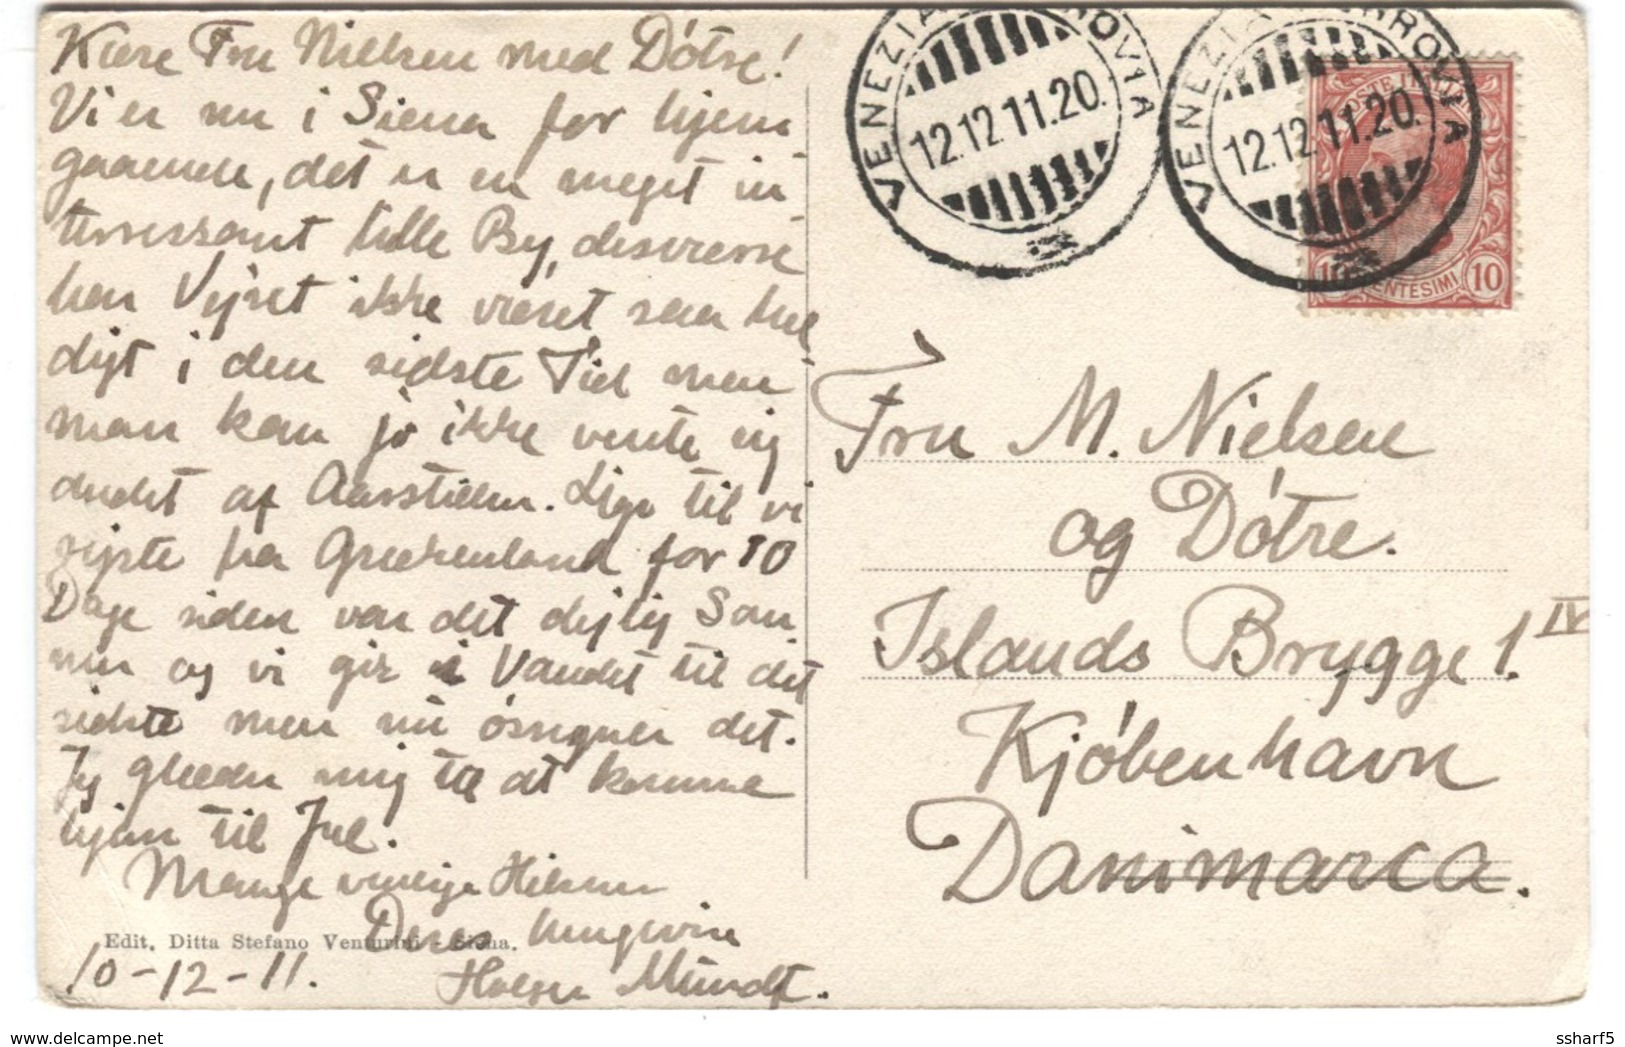 Kære Fru Nielsen med Døtre!
Vi er nu i Siena for hjem
gaaende, det er en meget in
teressant lille By, desværre
har Vejret ikke været saa hel
digt i den sidste Tid men
man kan jo ikke vente sig
andet af Aarstiden. Lige til vi
rejste fra Grækenland for 10
Dage siden var det dejlig Som
mer og vi gik i Vandet til det
sidste men nu øsregner det.
Jeg glæder mig til at komme
hjem til Jul.
Mange venlige Hilsner
Deres hengivne
Holger Mundt.
Edit. Ditta Stefano Venturini - Siena.
10-12-11.
VENEZIA FERROVIA
12.12.11.20.
VENEZIA FERROVIA
12.12.11.20.
POSTE ITALIANE
10 CENTESIMI 10
Fru M. Nielsen
og Døtre.
Islands Brygge 1. IV
Kjøbenhavn
Danimarca.
ssharf5